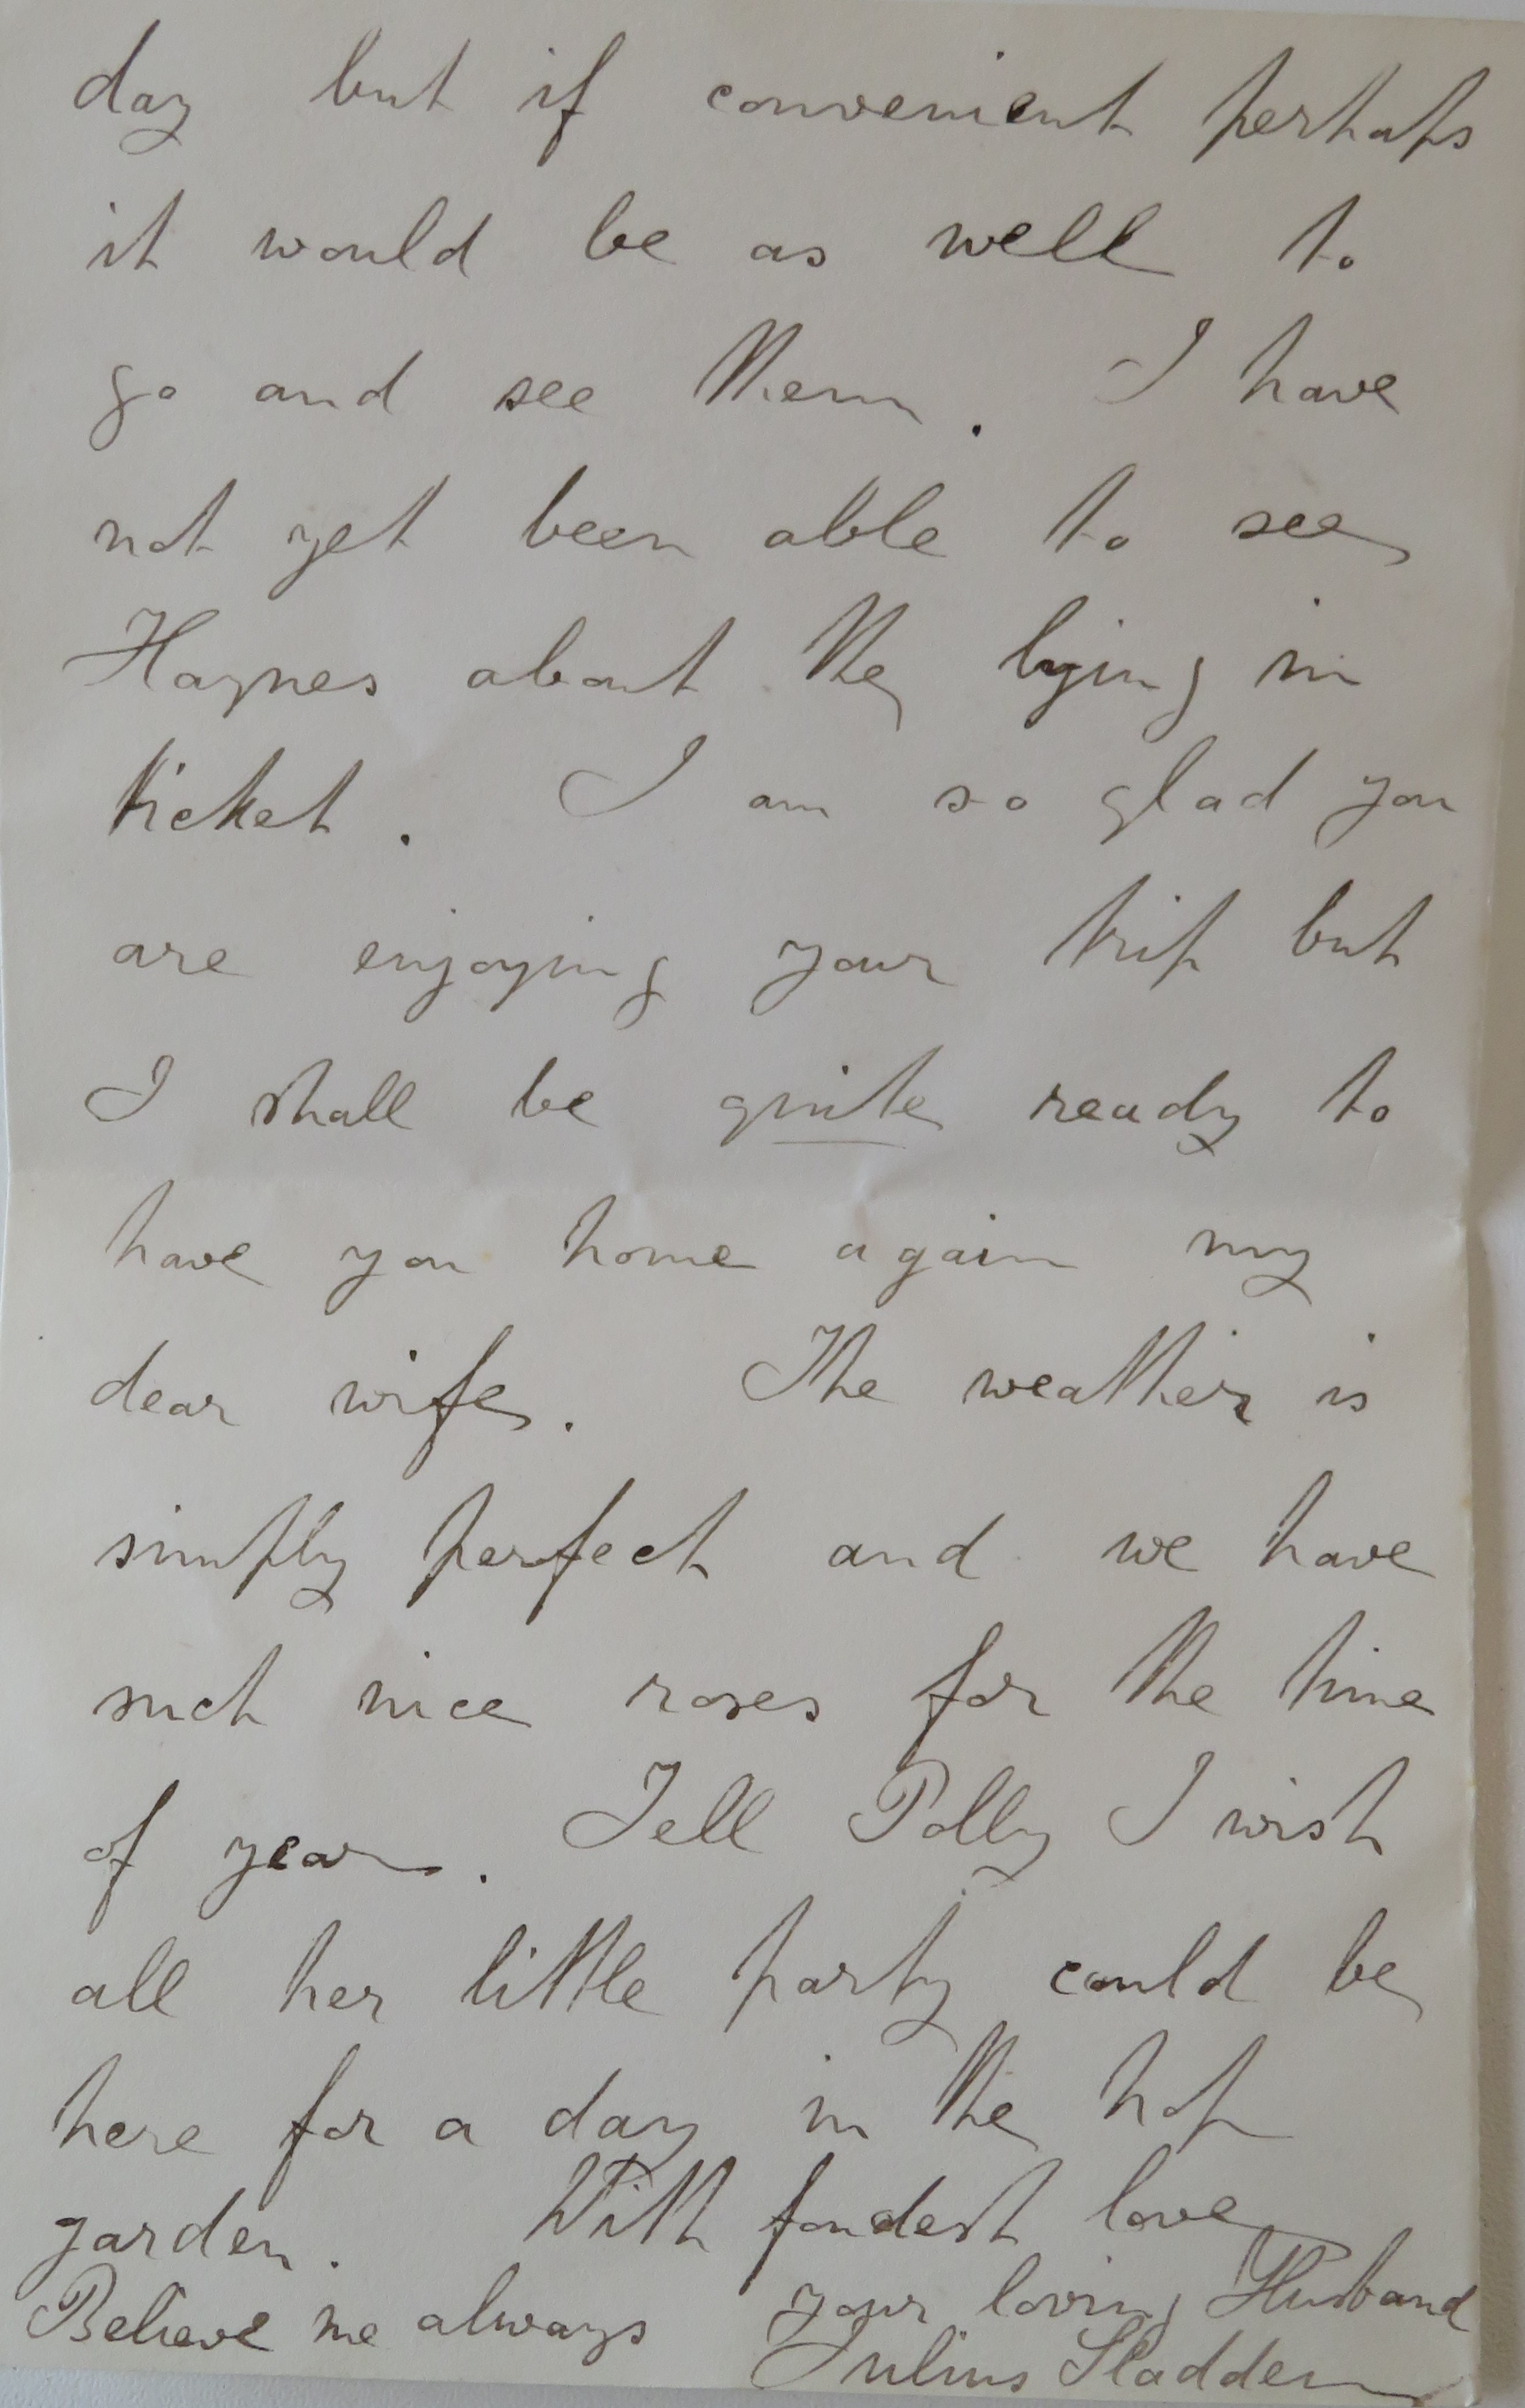 day but if convenient perhaps
it would be as well to
go and see them. I have
not yet been able to see
Haynes about the lying in
ticket. I am so glad you
are enjoying your trip but
I shall be quite ready to
have you home again my
dear wife. The weather is
simply perfect and we have
such nice roses for the time
of year. Tell Polly I wish
all her little party could be
here for a day in the hop
garden. With fondest love
Believe me always your loving Husband
Julius Sladden